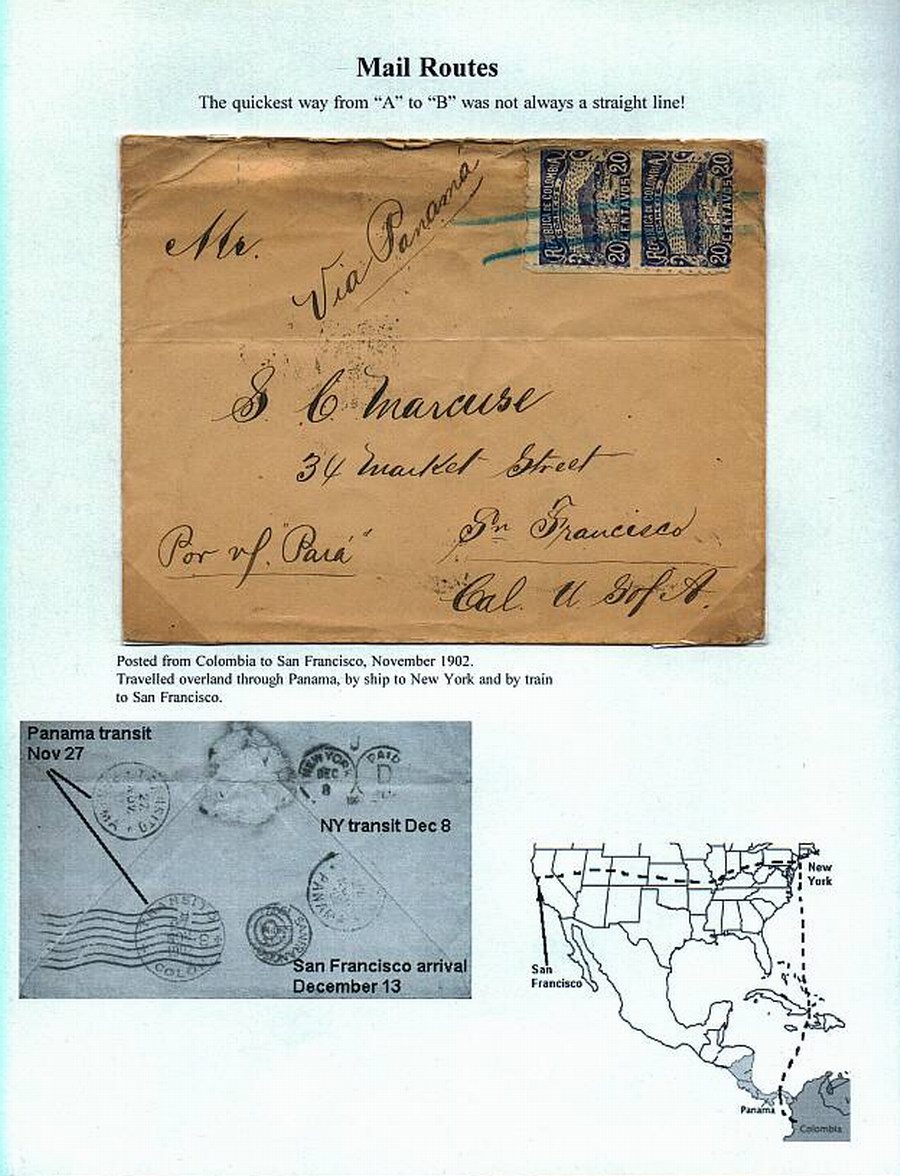 Mail Routes
The quickest way from “A” to “B” was not always a straight line!
Via Panamá
REPUBLICA DE COLOMBIA 20 CENTAVOS 20
REPUBLICA DE COLOMBIA 20 CENTAVOS 20
Mr.
S C Marcuse
34 Market Street
Sn Francisco
Por vf. "Pará"
Cal. U S of A.
Posted from Colombia to San Francisco, November 1902.
Travelled overland through Panama, by ship to New York and by train
to San Francisco.
Panama transit
Nov 27
NEW YORK
DEC
8
PAID
D
NY transit Dec 8
TRANSITO
27
NOV
TRANSITO
COLO
San Francisco arrival
December 13
New
York
San
Francisco
Panama
Colombia